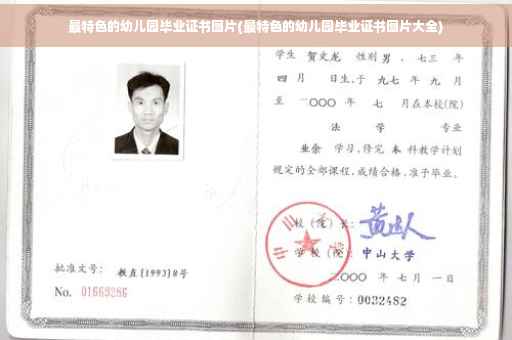 最特色的幼儿园毕业证书图片(最特色的幼儿园毕业证书图片大全)
学生 贺文龙 性别 男 、七三 年
四 月 日生,于 九七 年 九 月
至 二〇〇〇 年 七 月在本校(院)
法 学 专业
业余 学习,修完 本 科教学计划
规定的全部课程,成绩合格,准予毕业。
校(院)长:
学校(院): 中山大学
二〇〇〇 年 七 月 一 日
批准文号: 教直[1993]8号
No. 01669286
学校编号: 0032482